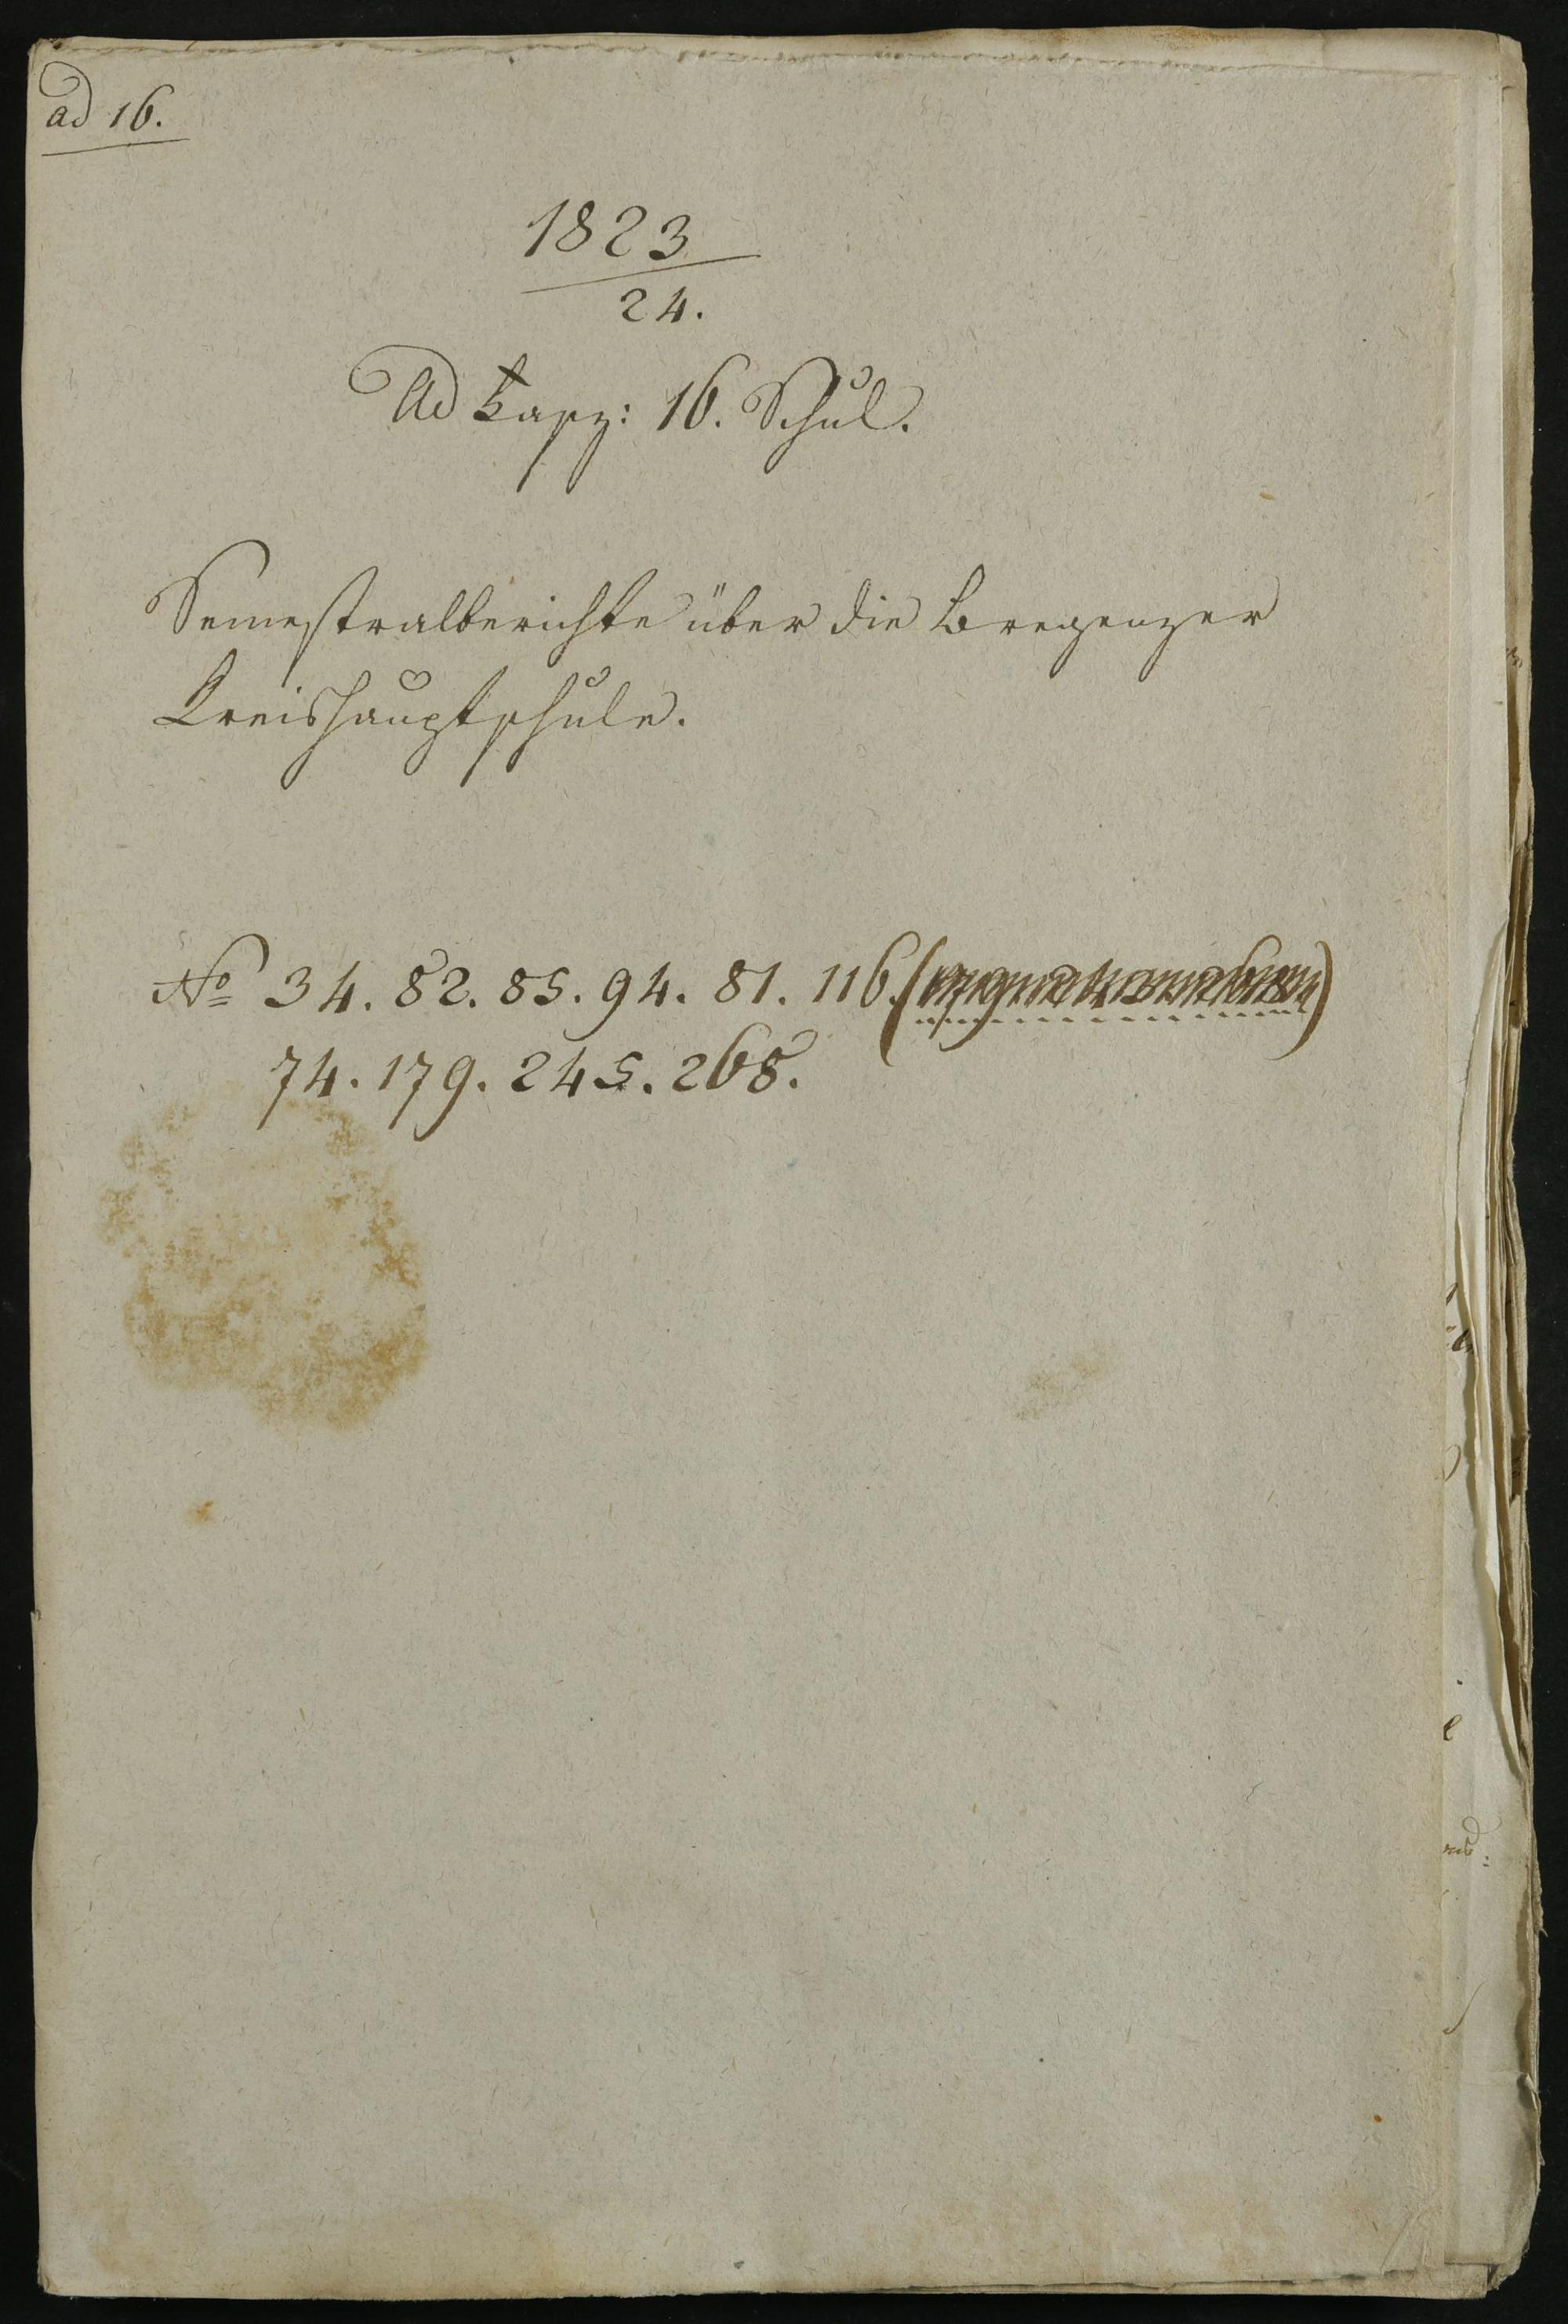 ad 16.
1823
24.
Ad Fasz: 16. Schul.
Semestralberichte über die Bregenzer
Kreishauptschule.
No 34. 82. 85. 94. 81. 116.
74. 179. 245. 268.